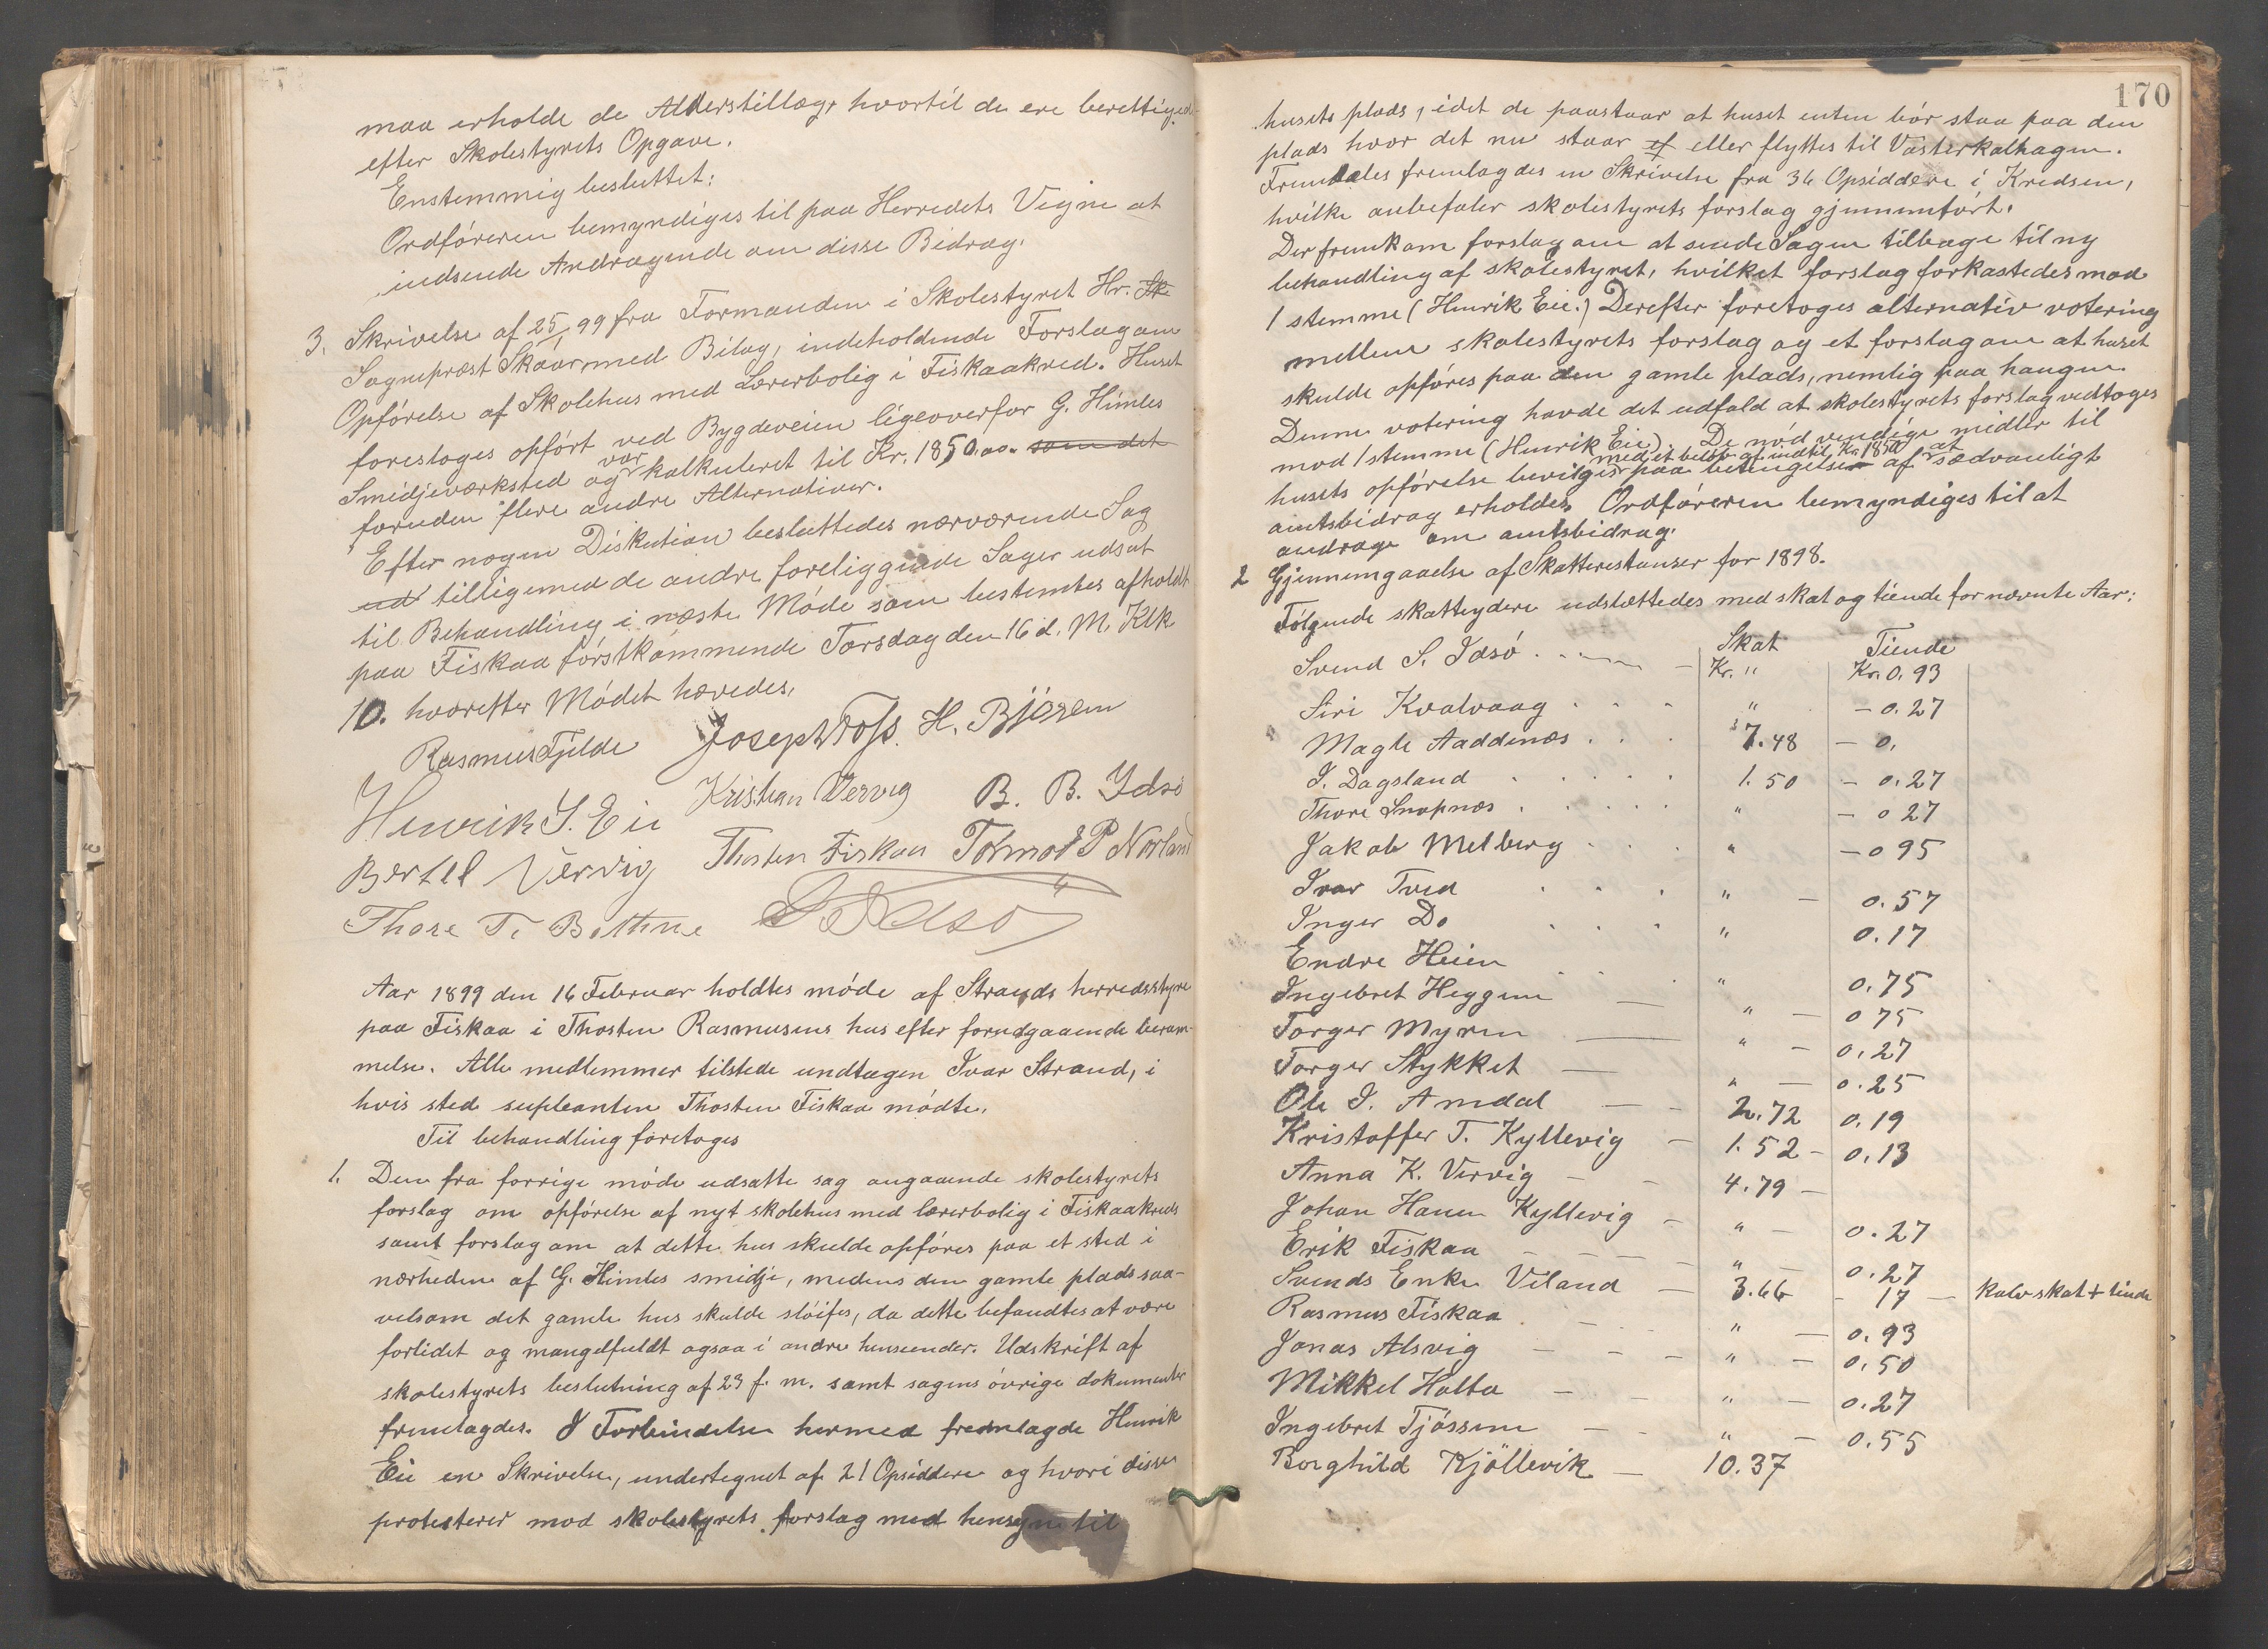 maa erholde de Alderstillæg, hvortil de ere berettiged
efter Skolestyrets Opgave.
Enstemmig besluttet:
Ordføreren bemyndiges til paa Herredets Vegne at
indsende Andragende om disse Bidrag.
3. Skrivelse af 25/1 99 fra Formanden i Skolestyret Hr. Sk
Sognepræst Skaar med Bilag, indeholdende Forslag om
Opførelse af Skolehus med Lærerbolig i Fiskaakred. Huset
foresloges opført ved Bygdeveien ligeoverfor G. Himles
Smidjeværksted og var kalkuleret til Kr. 1850,00. som det
foruden flere andre Alternativer.
Efter nogen Diskution besluttedes nærværende Sag
ud tilligemed de andre foreliggende Sager udsat
til Behandling i næste Møde som bestemtes afholdt
paa Fiskaa førstkommende Torsdag den 16 d. M. Klk
10. hvorefter Mødet hævedes.
Rasmus Tjelde Joseph Foss. H. Bjøren
Henrik S. Eie Kristian Vervig B. B. Idsø
Bertel Vervig Thosten Fiskaa Tormod P Norland
Thore T. Bothne
Aar 1899 den 16 Februar holdtes møde af Strands herredsstyre
paa Fiskaa i Thosten Rasmusens hus efter forudgaaende beram-
melse. Alle medlemmer tilstede undtagen Ivar Strand, i
hvis sted supleanten Thosten Fiskaa mødte.
Til behandling foretoges
1. Den fra forrige møde udsatte sag angaaende skolestyrets
forslag om opførelse af nyt skolehus med lærerbolig i Fiskaakreds
samt forslag om at dette hus skulde opføres paa et sted i
nærheden af G. Himles smidje, medens den gamle plads saa-
velsom det gamle hus skulde sløifes, da dette befandtes at være
forlidet og mangelfuldt ogsaa i andre henseender. Udskrift af
skolestyrets beslutning af 23 f. m. samt sagens øvrige dokumenter
fremlagdes. I Forbindelse hermed fremlagde Henrik
Eie en Skrivelse, undertegnet af 21 Opsiddere og hvori disse
protesterer mod skolestyrets forslag med hensyn til
170
husets plads, idet de paastaar at huset enten bør staa paa den
plads hvor det nu staar ef eller flyttes til Vasterkalhagen.
Fremdeles fremlagdes en Skrivelse fra 36 Opsiddere i Kredsen,
hvilke anbefaler skolestyrets forslag gjennemført.
Der fremkom forslag om at sende Sagen tilbage til ny
behandling af skolestyret, hvilket forslag forkastedes mod
1 stemme (Henrik Eie.) Derefter foretoges alternativ votering
mellem skolestyrets forslag og et forslag om at huset
skulde opføres paa den gamle plads, nemlig paa haugen.
Denne votering havde det udfald at skolestyrets forslag vedtoges
mod 1 stemme (Henrik Eie). De nødvendige midler til
med et beløb af indtil Kr. 1850 at
husets opførelse bevilges paa betingelse af sædvanligt
amtsbidrag erholdes. Ordføreren bemyndiges til at
andrage om amtsbidrag.
2 Gjennemgaaelse af Skatterestanser for 1898.
Følgende skatteydere udslettedes med skat og tiende for nævnte Aar:
Skat Tiende
Svend S. Idsø . . — Kr. " Kr. 0.93
Siri Kvalvaag . . . " — 0.27
Magle Aaddenæs . . . 7.48 — 0.
I. Dagsland . . . . . 1.50 — 0.27
Thore Snopnæs . . . . . " — 0 27
Jakob Melberg . . . " — 0 95
Ivar Tved . . . " — 0.57
Inger Do . . . " 0.17
Endre Heien . . . " 0.75
Ingebret Heggem — " — 0 75
Torger Myren — " — 0.27
Torger Stykket — " — 0.25
Ole I. Amdal — - 2.72 0.19
Kristoffer T. Kyllevig - 1.52 - 0.13
Anna K. Vervig - - 4.79 -
Johan Hanen Kyllevig - " - 0.27
Erik Fiskaa - - - " - 0.27
Svends Enke Veland - 3.66 - 17 — Kalv skat + tiende
Rasmus Fiskaa . - - " - 0.93
Jonas Alsvig - - - " - 0.50
Mikkel Holta - - " - 0.27
Ingebret Tjøssem - - " - 0.55
Borghild Kjøllevik - 10.37